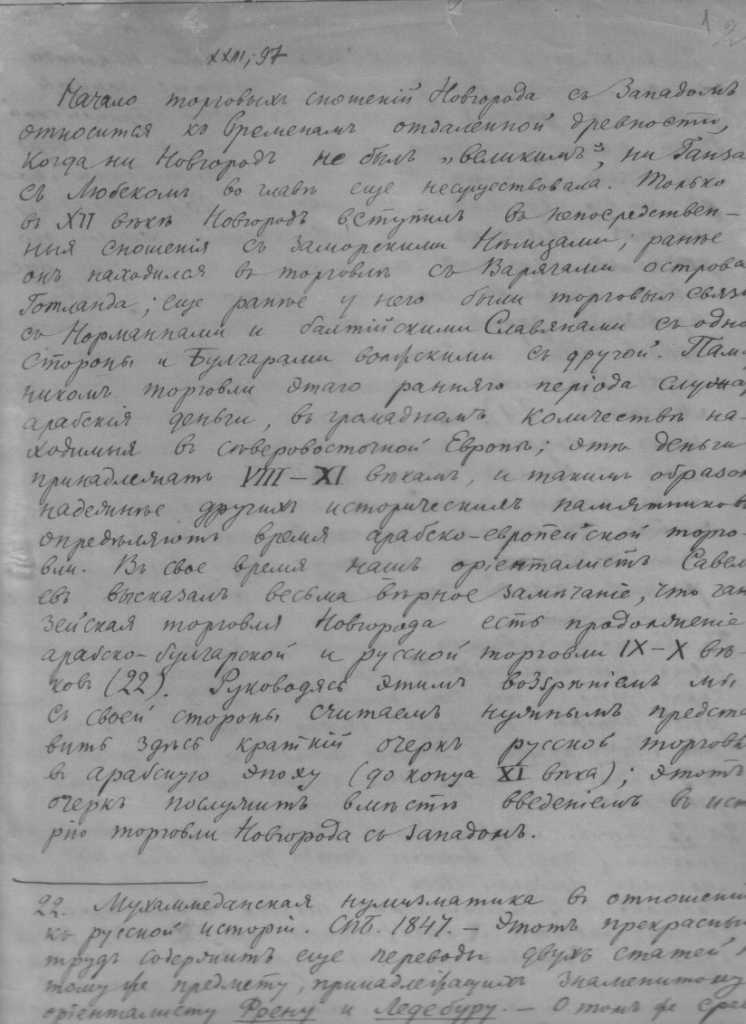 1 2
XXII, 97
Начало торговыхъ сношеній Новгорода съ Западомъ
относится къ временамъ отдаленной древности,
когда ни Новгородъ не былъ „великимъ“, ни Ганза
съ Любекомъ во главѣ еще не существовала. Только
въ XII вѣкѣ Новгородъ вступилъ въ непосредствен-
ныя сношенія съ заморскими Нѣмцами; ранѣе
онъ находился въ торговлѣ съ Варягами острова
Готланда; еще ранѣе у него были торговыя связи
съ Норманнами и балтійскими Славянами съ одно
стороны и Булгарами волжскими съ другой. Пам
никомъ торговли этаго ранняго періода служа
арабскія деньги, въ громадномъ количествѣ на-
ходимыя въ сѣверовосточной Европѣ; эти деньги
принадлежатъ VIII–XI вѣкамъ, и такимъ образом
надежнѣе другихъ историческихъ памятников
опредѣляютъ время арабско-европейской торго-
вли. Въ свое время нашъ оріенталистъ Савел
евъ высказалъ весьма вѣрное замѣчаніе, что ган
зейская торговля Новгорода есть продолженіе
арабско-булгарской и русской торговли IX–X вѣ-
ковъ (22). Руководясь этимъ воззрѣніемъ мы
съ своей стороны считаемъ нужнымъ предста
вить здѣсь краткій очеркъ русской торговл
въ арабскую эпоху (до конца XI вѣка); этотъ
очеркъ послужитъ вмѣстѣ введеніемъ въ ист
рію торговли Новгорода съ западомъ.
22. Мухаммеданская нумизматика въ отношені
къ русской исторіи. Спб. 1847. – Этотъ прекрасны
трудъ содержитъ еще переводы двухъ статей п
тому же предмету, принадлежащихъ знаменитому
оріенталисту Френу и Ледебуру. – О томъ же